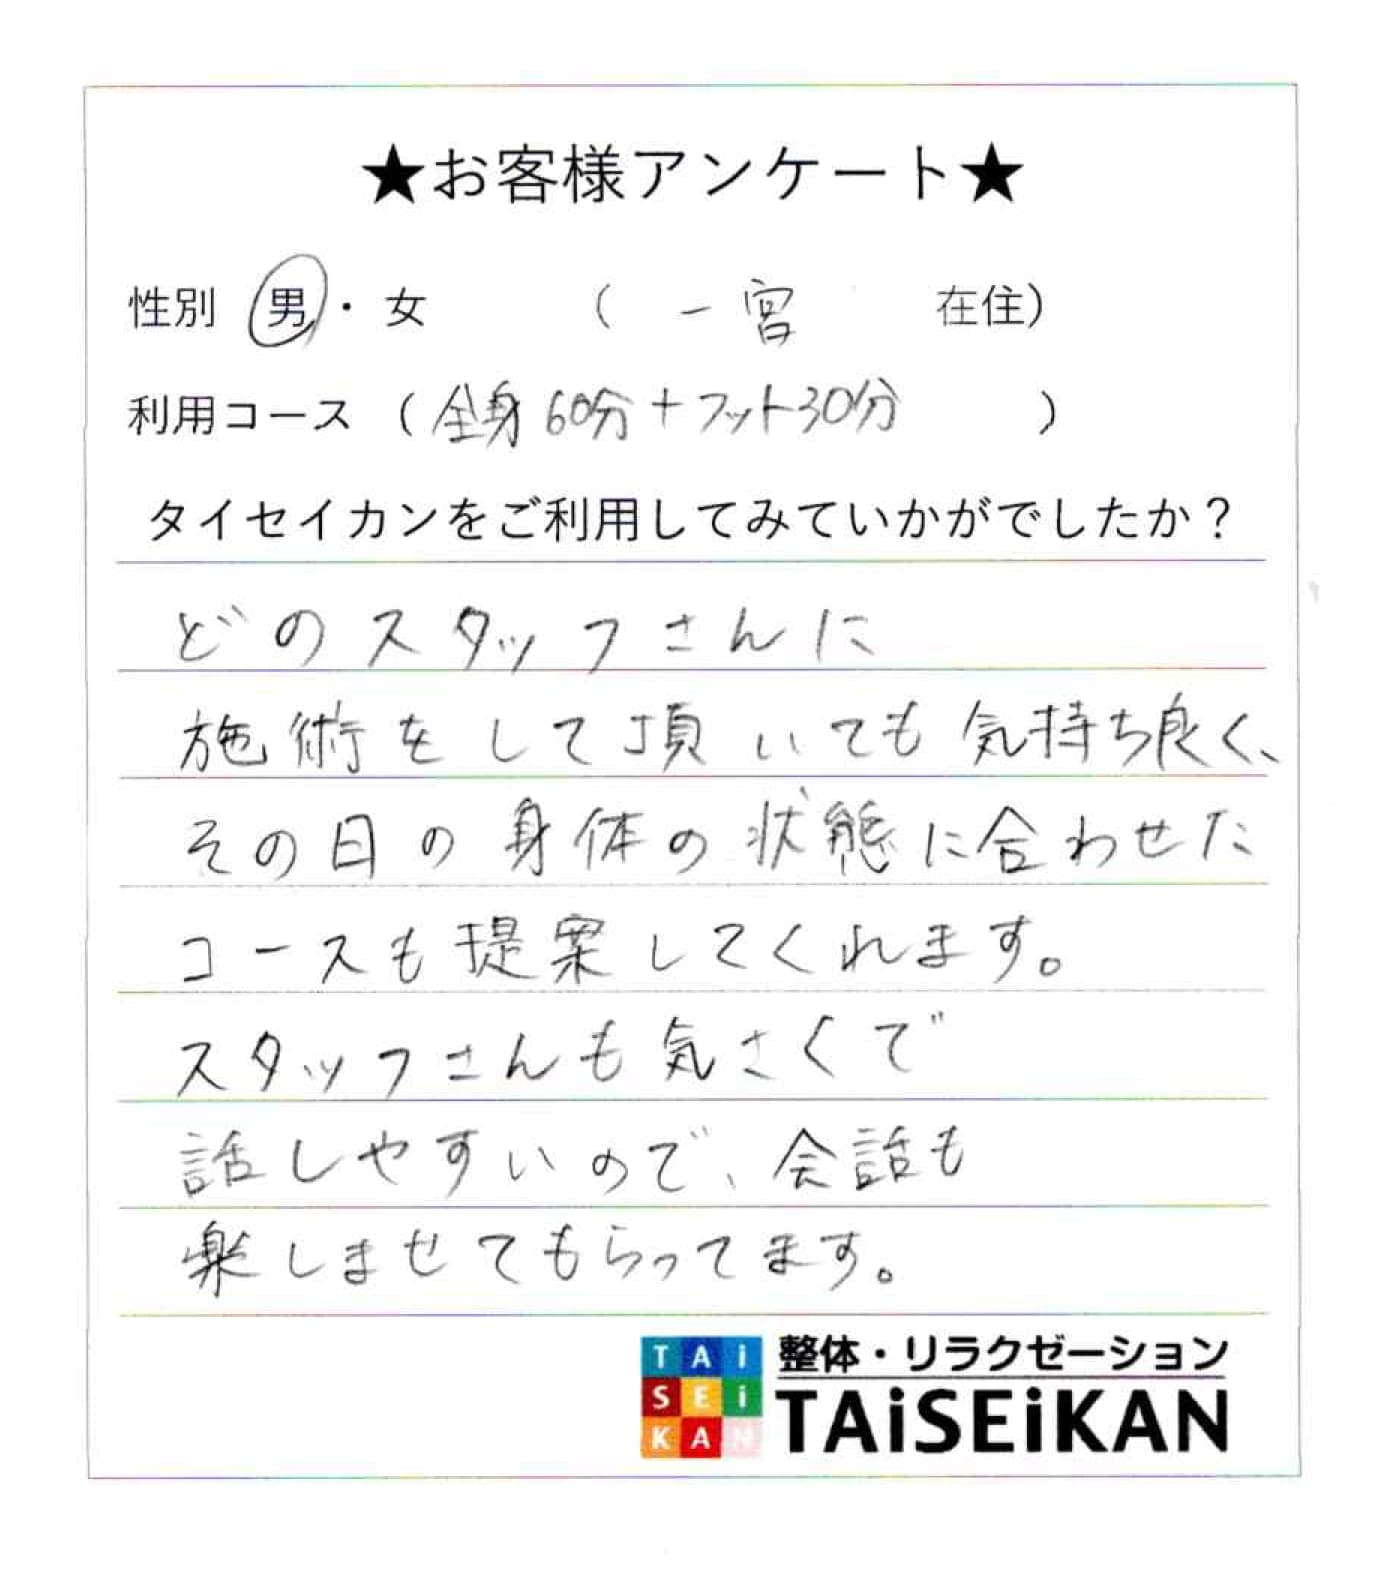 ★お客様アンケート★
性別 男・女 (一宮 在住)
利用コース (全身60分+フット30分)
タイセイカンをご利用してみていかがでしたか?
どのスタッフさんに
施術をして頂いても気持ち良く、
その日の身体の状態に合わせた
コースも提案してくれます。
スタッフさんも気さくで
話しやすいので、会話も
楽しませてもらってます。
TAi
SEi
KAN
整体・リラクゼーション
TAiSEiKAN